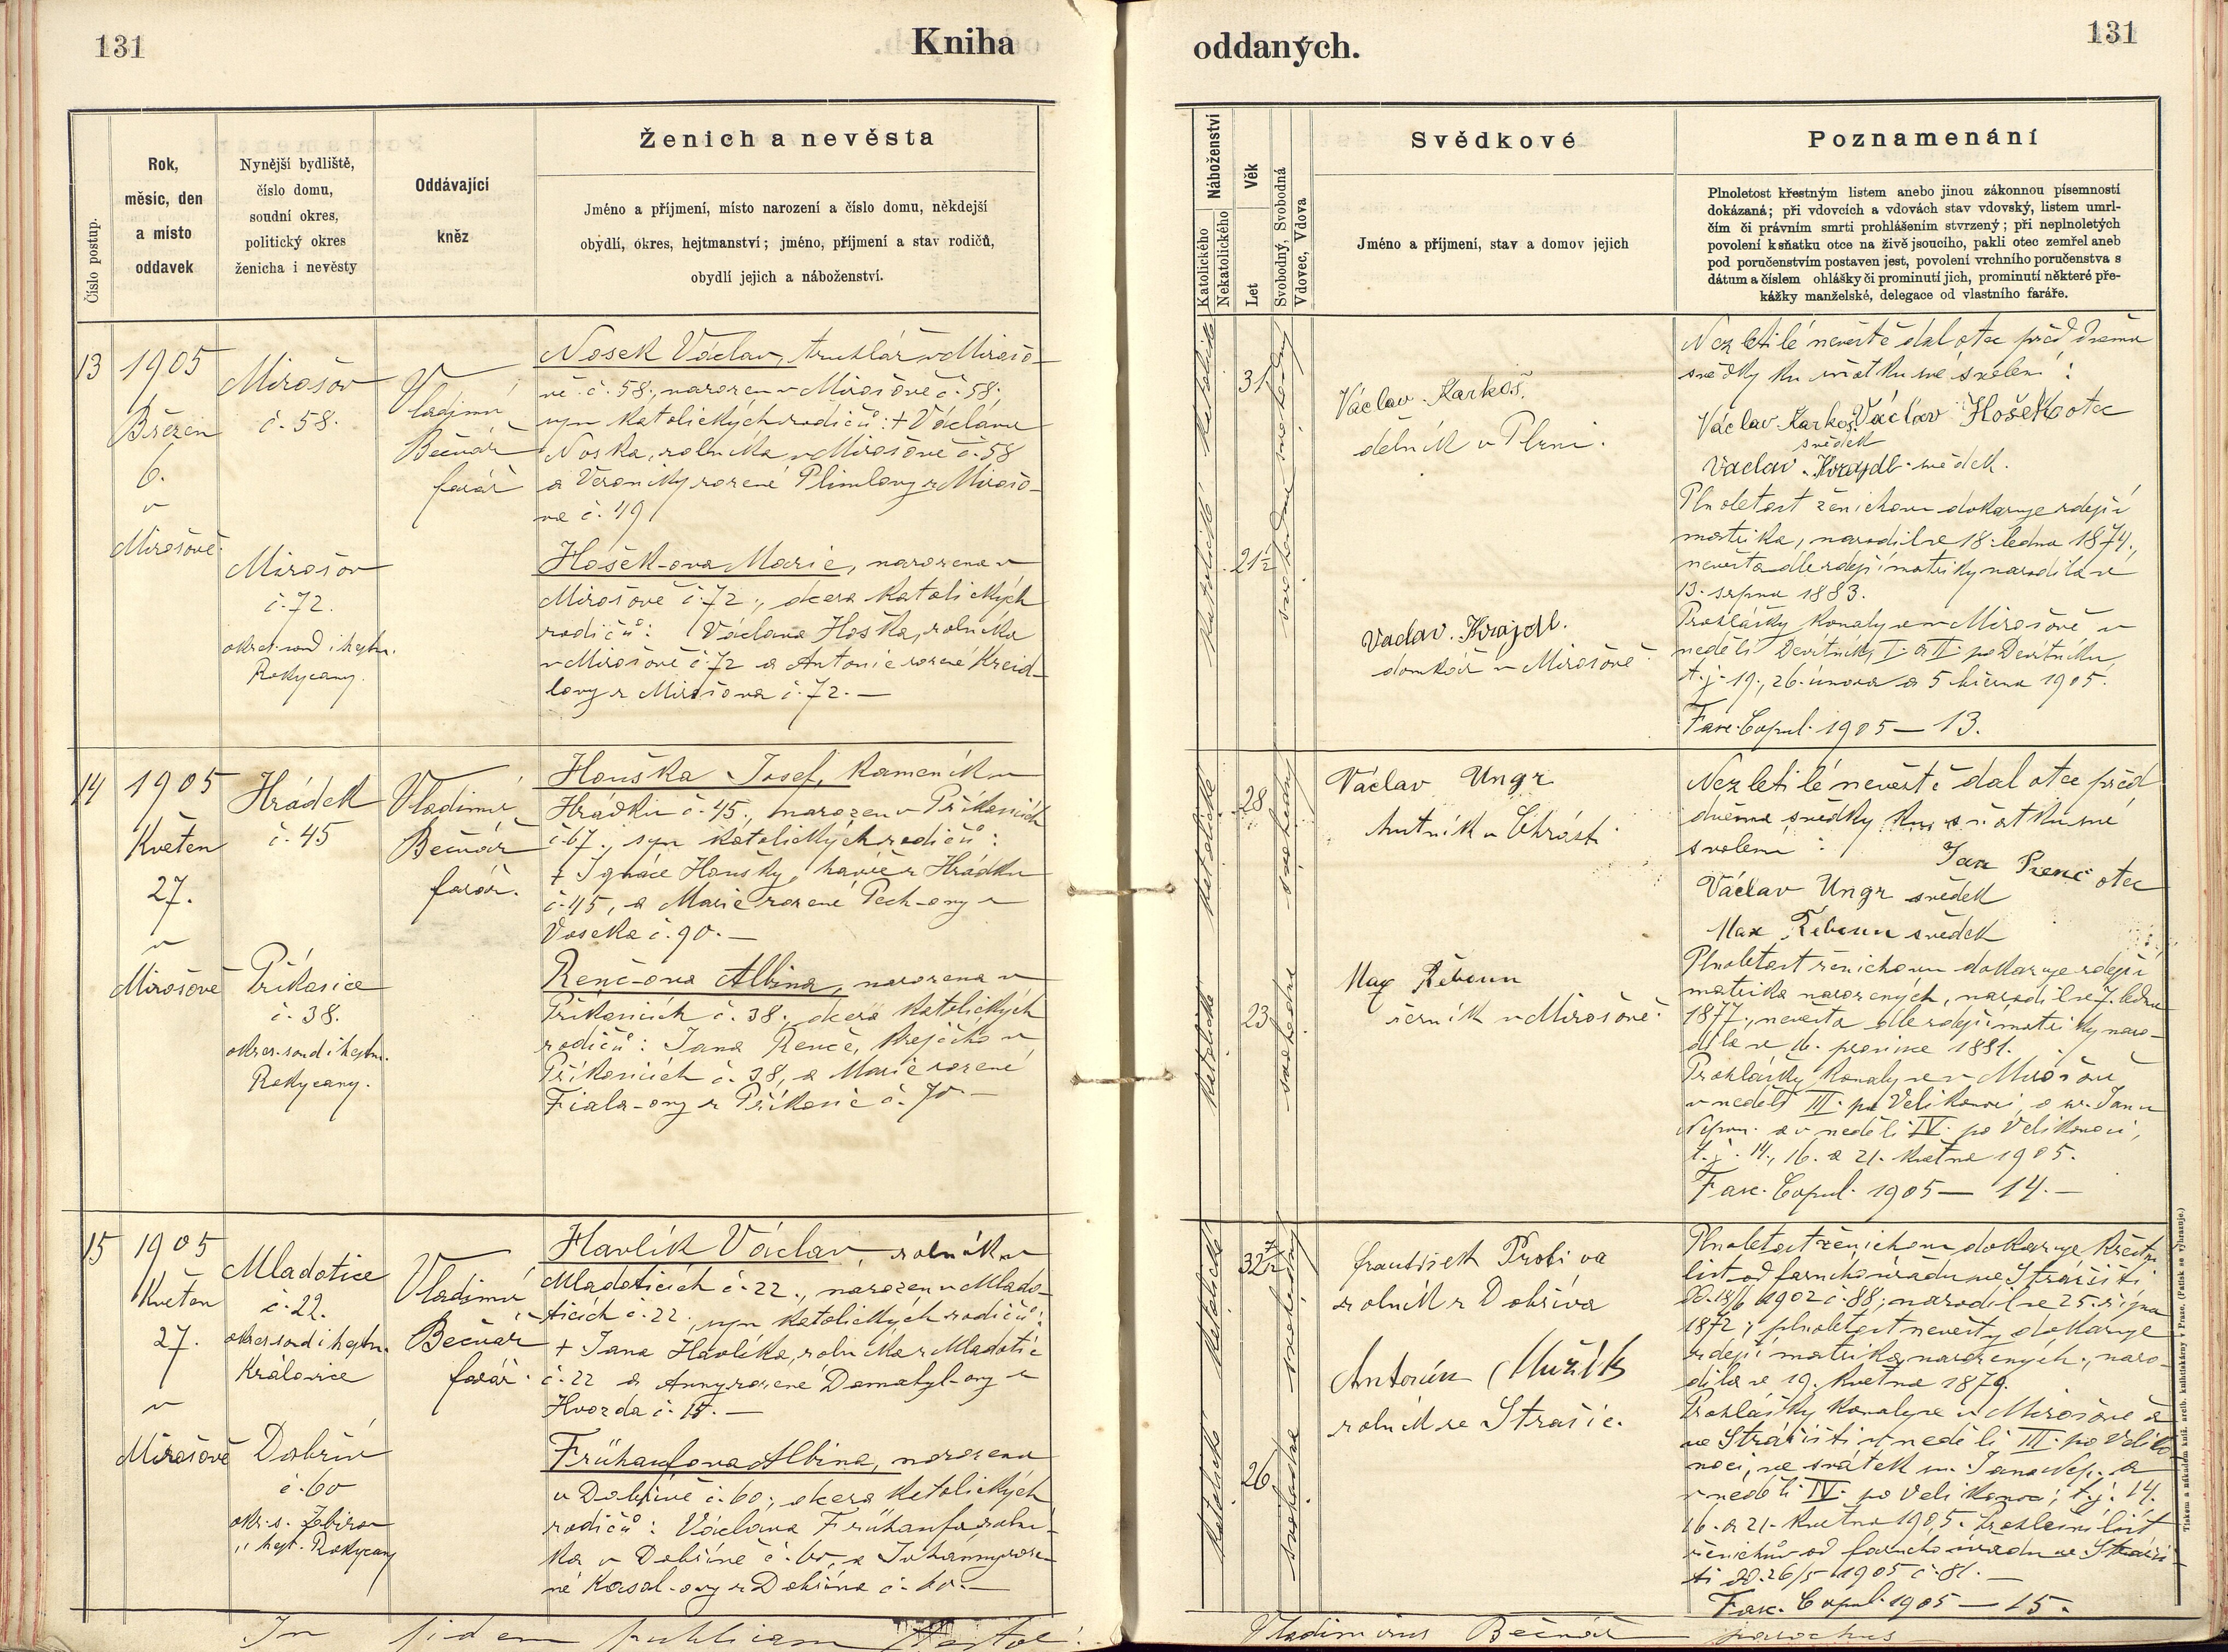 131
Kniha
oddaných.
131
Číslo postup.
Rok,
měsíc, den
a místo
oddavek
Nynější bydliště,
číslo domu,
soudní okres,
politický okres
ženicha i nevěsty
Oddávající
kněz
Ženich a nevěsta
Jméno a příjmení, místo narození a číslo domu, někdejší
obydlí, okres, hejtmanství; jméno, příjmení a stav rodičů,
obydlí jejich a náboženství.
Náboženství
Katolického
Nekatolického
Věk
Let
Svobodný, Svobodná
Vdovec, Vdova
Svědkové
Jméno a příjmení, stav a domov jejich
Poznamenání
Plnoletost křestným listem anebo jinou zákonnou písemností
dokázaná; při vdovcích a vdovách stav vdovský, listem umrl-
čím či právním smrti prohlášením stvrzený; při neplnoletých
povolení k sňatku otce na živě jsoucího, pakli otec zemřel aneb
pod poručenstvím postaven jest, povolení vrchního poručenstva s
dátum a číslem ohlášky či prominutí jich, prominutí některé pře-
kážky manželské, delegace od vlastního faráře.
13
1905
Březen
6.
v
Mirošově
Mirošov
č. 58.
Mirošov
č. 72.
okres. soud i hejtm.
Rokycany.
Vladimír
Bečvář
farář
Nosek Václav, truhlář v Mirošo-
vě č. 58., narozen v Mirošově č. 58.,
syn katolických rodičů: + Václava
Noska, rolníka v Mirošově č. 58
a Veroniky rozené Plimlovy z Mirošo-
va č. 49
Hošek-ova Marie, narozena v
Mirošově č. 72., dcera katolických
rodičů: Václava Hoška, rolníka
v Mirošově č. 72 a Antonie rozené Kreid-
lovy z Mirošova č. 72. —
katolické
katolické
31
21½
svobodný
svobodná
Václav Karkoš.
dělník v Plzni.
Václav Krajdl.
domkář v Mirošově
Nezletilé nevěstě dal otec před dvěma
svědky ku sňatku své svolení:
Václav Karkoš Václav Hošek otec
svědek
Václav Krajdl svědek.
Plnoletost ženichovu dokazuje zdejší
matrika, narodil se 18. ledna 1874.,
nevěsta dle zdejší matriky narodila se
13. srpna 1883.
Prohlášky konaly se v Mirošově v
neděli Devítník, I. a II. po Devítníku,
t. j. 19., 26. února a 5 března 1905.
Fasc. Copul. 1905 — 13.
14
1905
Květen
27.
v
Mirošově
Hrádek
č. 45
Příkosice
č. 38.
okres. soud i hejtm.
Rokycany.
Vladimír
Bečvář
farář.
Houška Josef, kameník v
Hrádku č. 45., narozen v Příkosicích
č. 67., syn katolických rodičů:
+ Ignáce Houšky, havíře z Hrádku
č. 45, a Marie rozené Pech-ovy z
Voseka č. 90. —
Renč-ova Albina, narozena v
Příkosicích č. 38., dcera katolických
rodičů: Jana Renče, krejčího v
Příkosicích č. 38, a Marie rozené
Fiala-ovy z Příkosic č. 70 —
katolické
katolické
28
23
svobodný
svobodná
Václav Ungr
hutník v Chrásti
Max Řeboun
řezník v Mirošově.
Nezletilé nevěstě dal otec před
dvěma svědky ku sňatku své
svolení:
Jan Renč otec
Václav Ungr svědek
Max Řeboun svědek
Plnoletost ženichovu dokazuje zdejší
matrika narozených, narodil se 7. ledna
1877., nevěsta dle zdejší matriky naro-
dila se 16. prosince 1881.
Prohlášky konaly se v Mirošově
v neděli III. po Velikonoci, o sv. Janu
Nepom. a v neděli IV. po Velikonoci,
t. j. 14., 16. a 21. května 1905.
Fasc. Copul. 1905 — 14. —
15
1905
Květen
27.
v
Mirošově
Mladotice
č. 22.
okres. soud i hejtm.
Kralovice
Dobřív
č. 60
okr. s. Zbirov
,, hejt. Rokycany
Vladimír
Bečvář
farář.
Havlík Václav rolník v
Mladoticích č. 22., narozen v Mlado-
ticích č. 22., syn katolických rodičů:
+ Jana Havlíka, rolníka z Mladotic
č. 22 a Anny rozené Domabyl-ovy z
Hvozda č. 15. —
Frühaufova Albina, narozena
v Dobřívě č. 60., dcera katolických
rodičů: Václava Frühaufa rolní-
ka v Dobřívě č. 60, a Johanny roze-
né Kasal-ovy z Dobříva č. 60. —
katolické
katolické
32 7/12
26
svobodný
svobodná
František Protiva
rolník z Dobříva
Antonín Mužík
rolník ze Strašic.
Plnoletost ženichovu dokazuje křestní
list od farního úřadu ve Strážišti
dd. 18/6 1902 č. 88; narodil se 25. října
1872; plnoletost nevěsty dokazuje
zdejší matrika narozených, naro-
dila se 19. května 1879.
Prohlášky konaly se v Mirošově a
ve Strážišti v neděli III. po Veliko
noci, ve svátek sv. Jana Nep. a
v neděli IV. po Velikonoci, t. j. 14.
16. a 21. května 1905. Prohlašní list
ženichův od farního úřadu ve Stráži-
šti dd. 26/5 1905 č. 81. —
Fasc. Copul. 1905 — 15.
Tiskem a nákladem kníž. arcib. knihtiskárny v Praze. (Patisk se vyhrazuje.)
In fidem publicam
Vladimirus Bečvář parochus